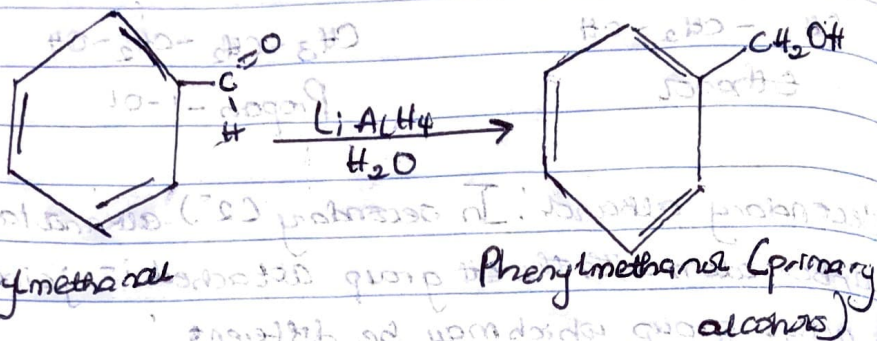 C O
H
CH2OH
LiAlH4
H2O
ylmethanal
Phenylmethanol (primary
alcohols)